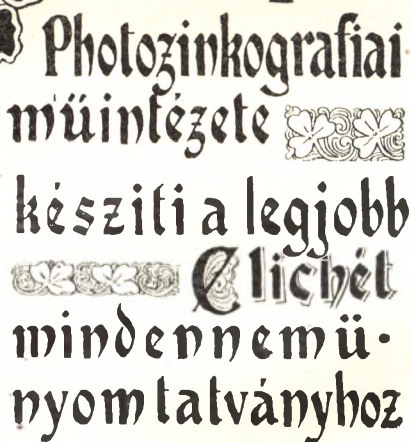 Photozinkografiai
müintézete
késziti a legjobb
Clichét
mindennemü-
nyomtatványhoz